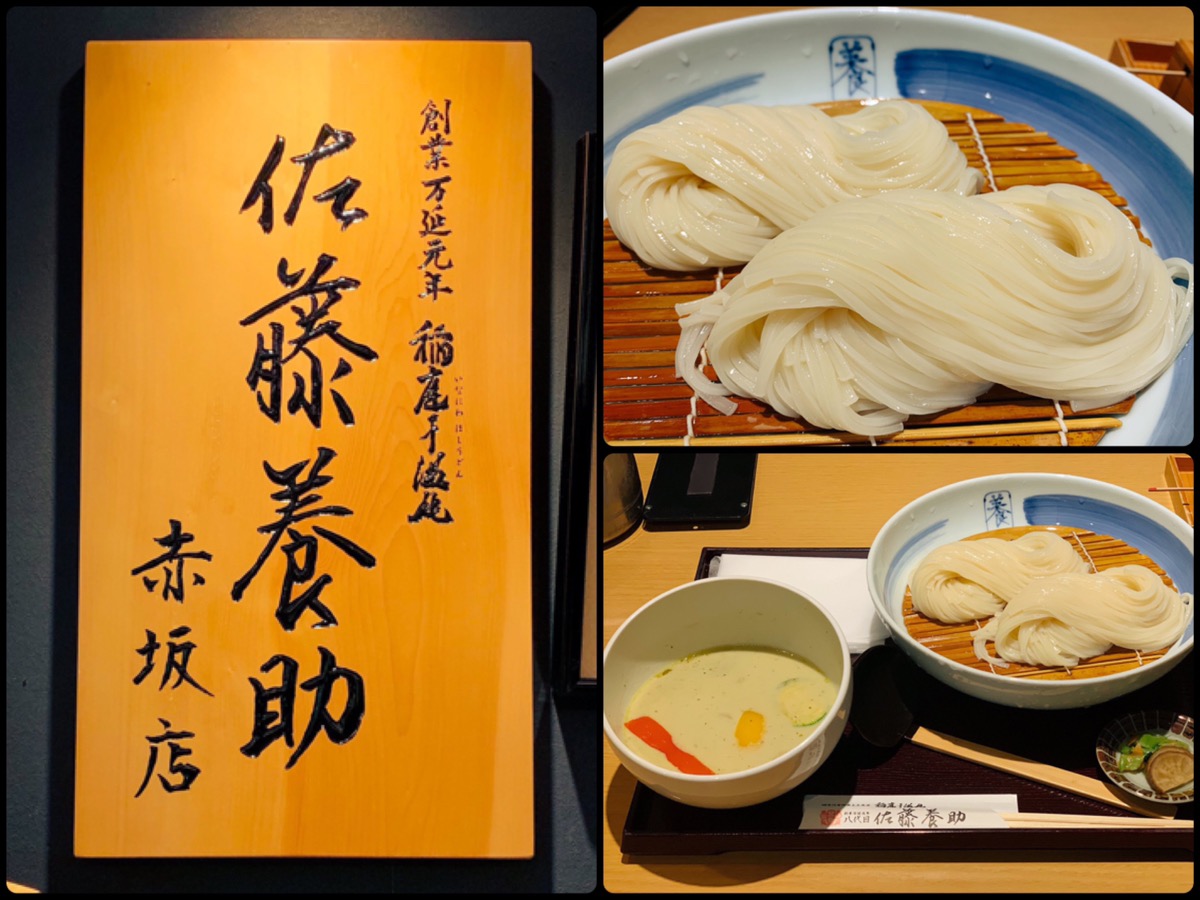 創業万延元年 稲庭干饂飩
いなにわ ほしうどん
佐藤養助
赤坂店
養
養
稲庭干饂飩
八代目 佐藤養助